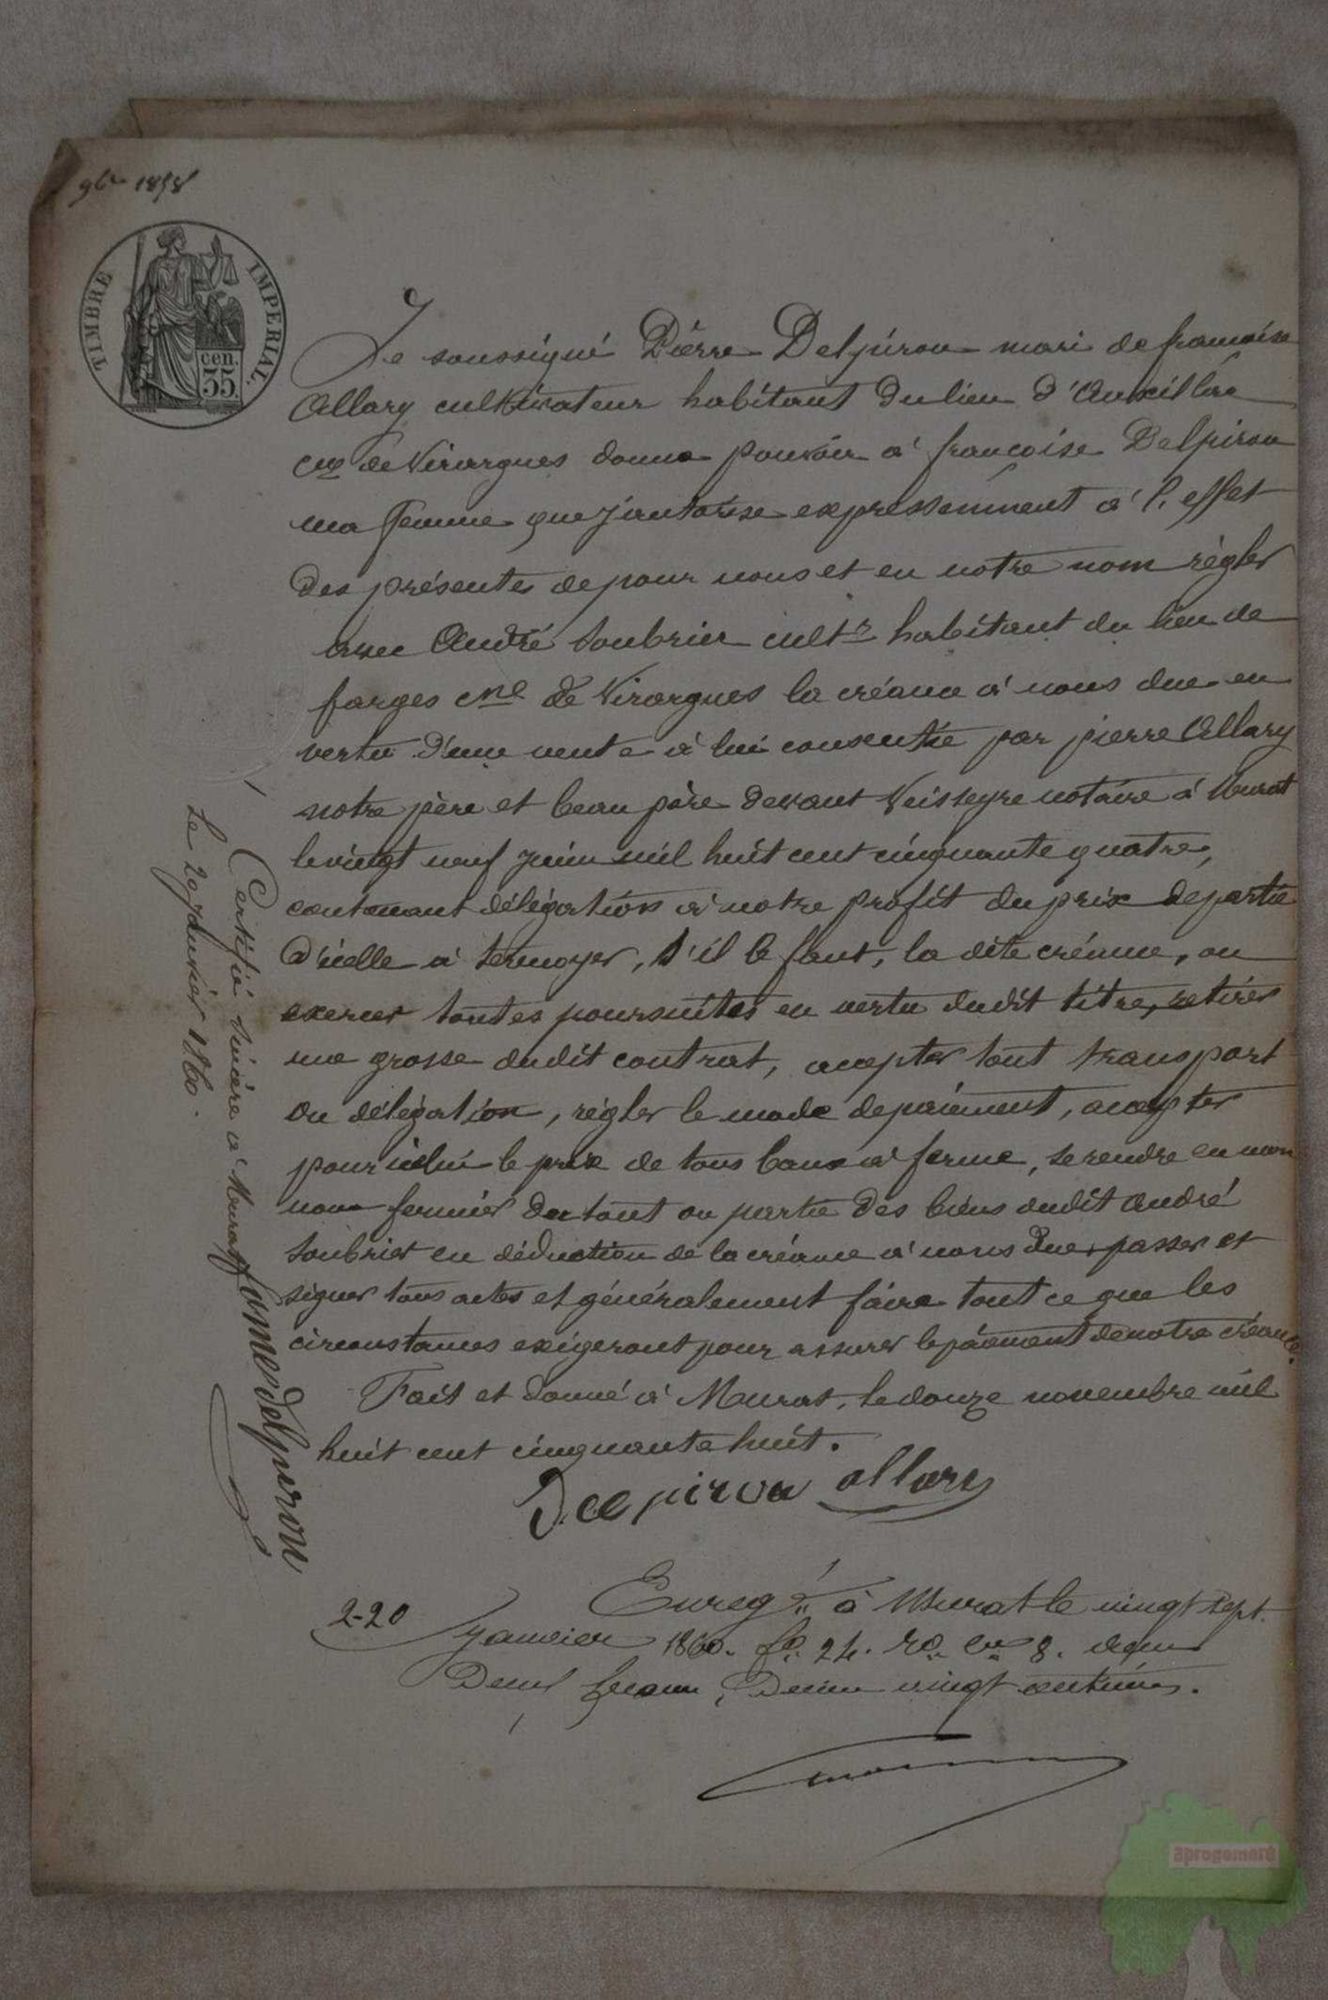 9bre 1858
TIMBRE IMPERIAL
cen.
35.
Je soussigné Pierre Delpirou mari de francoise
Allary cultivateur habitant du lieu d'Auxillac
cne de Virargues donne pouvoir à francoise Delpirou
ma femme que j'autorise expressemment à l'effet
des présentes de pour nous et en notre nom régler
avec André Soubrier cultr habitant du lieu de
farges cne de Virargues la créance à nous due en
vertu d'une vente à lui consentie par pierre Allary
notre père et beau père devant Veisseyre notaire à Murat
le vingt neuf juin mil huit cent cinquante quatre,
contenant délégation à notre profit du prix de partie
d'icelle à termoyer, s'il le faut, la dite créance, ou
exercer toutes poursuites en vertu dudit titre, retirer
une grosse dudit contrat, accepter tout transport
ou délégation, régler le mode de paiement, accepter
pour icelui le prix de tous baux à ferme, se rendre en mon
nom fermier du tout ou partie des biens dudit André
Soubrier en déduction de la créance à nous due, passer et
signer tous actes et généralement faire tout ce que les
circonstances exigeront pour assurer le paiement de notre créance.
Fait et donné à Murat, le douze novembre mil
huit cent cinquante huit.
Delpirou allary
Certifié sincère à Murat
Le 20 janvier 1860.
fanmes delpirou
2-20
Enregé à Murat le vingt sept
janvier 1860. fo. 24. Ro. Ce 8. reçu
Deux francs, Décime vingt centimes.
aprogemere